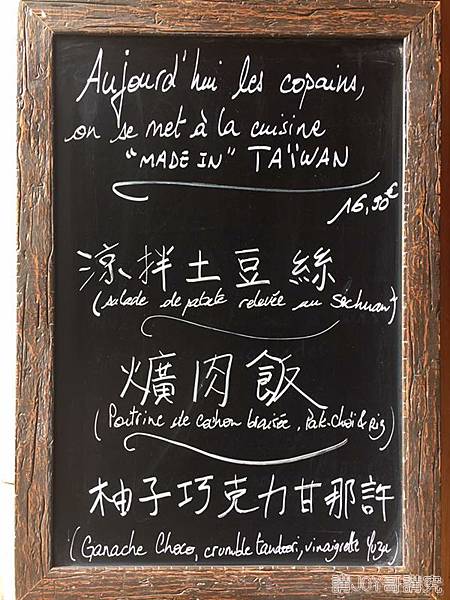 Aujourd'hui les copains,
on se met à la cuisine
"MADE IN" TAÏWAN
16,90€
涼拌土豆絲
(salade de patate relevée au Sechuan)
爌肉飯
(Poitrine de cochon braisée, Pak-Choï & Riz)
柚子巧克力甘那許
(Ganache Choco, crumble tandoori, vinaigrette Yuzu)
講JOY哥講究